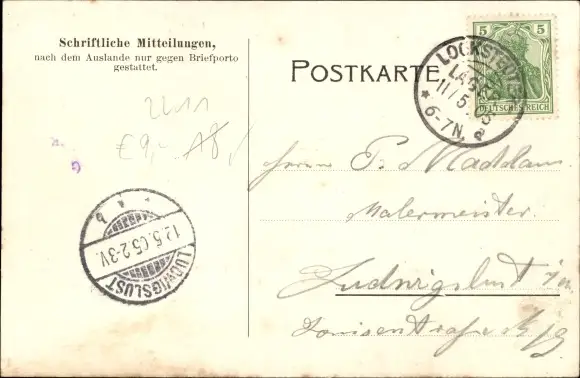 Schriftliche Mitteilungen,
nach dem Auslande nur gegen Briefporto
gestattet.
POSTKARTE
5 5
DEUTSCHES REICH
LOCKSTEDTER
LAGER
11/5.05
* 6-7N. a
2211
€9,- 18,-
Herrn P. Maddaus
Malermeister.
Ludwigslust i/m.
Louisenstraße
12.5.05.2-3V.
LUDWIGSLUST